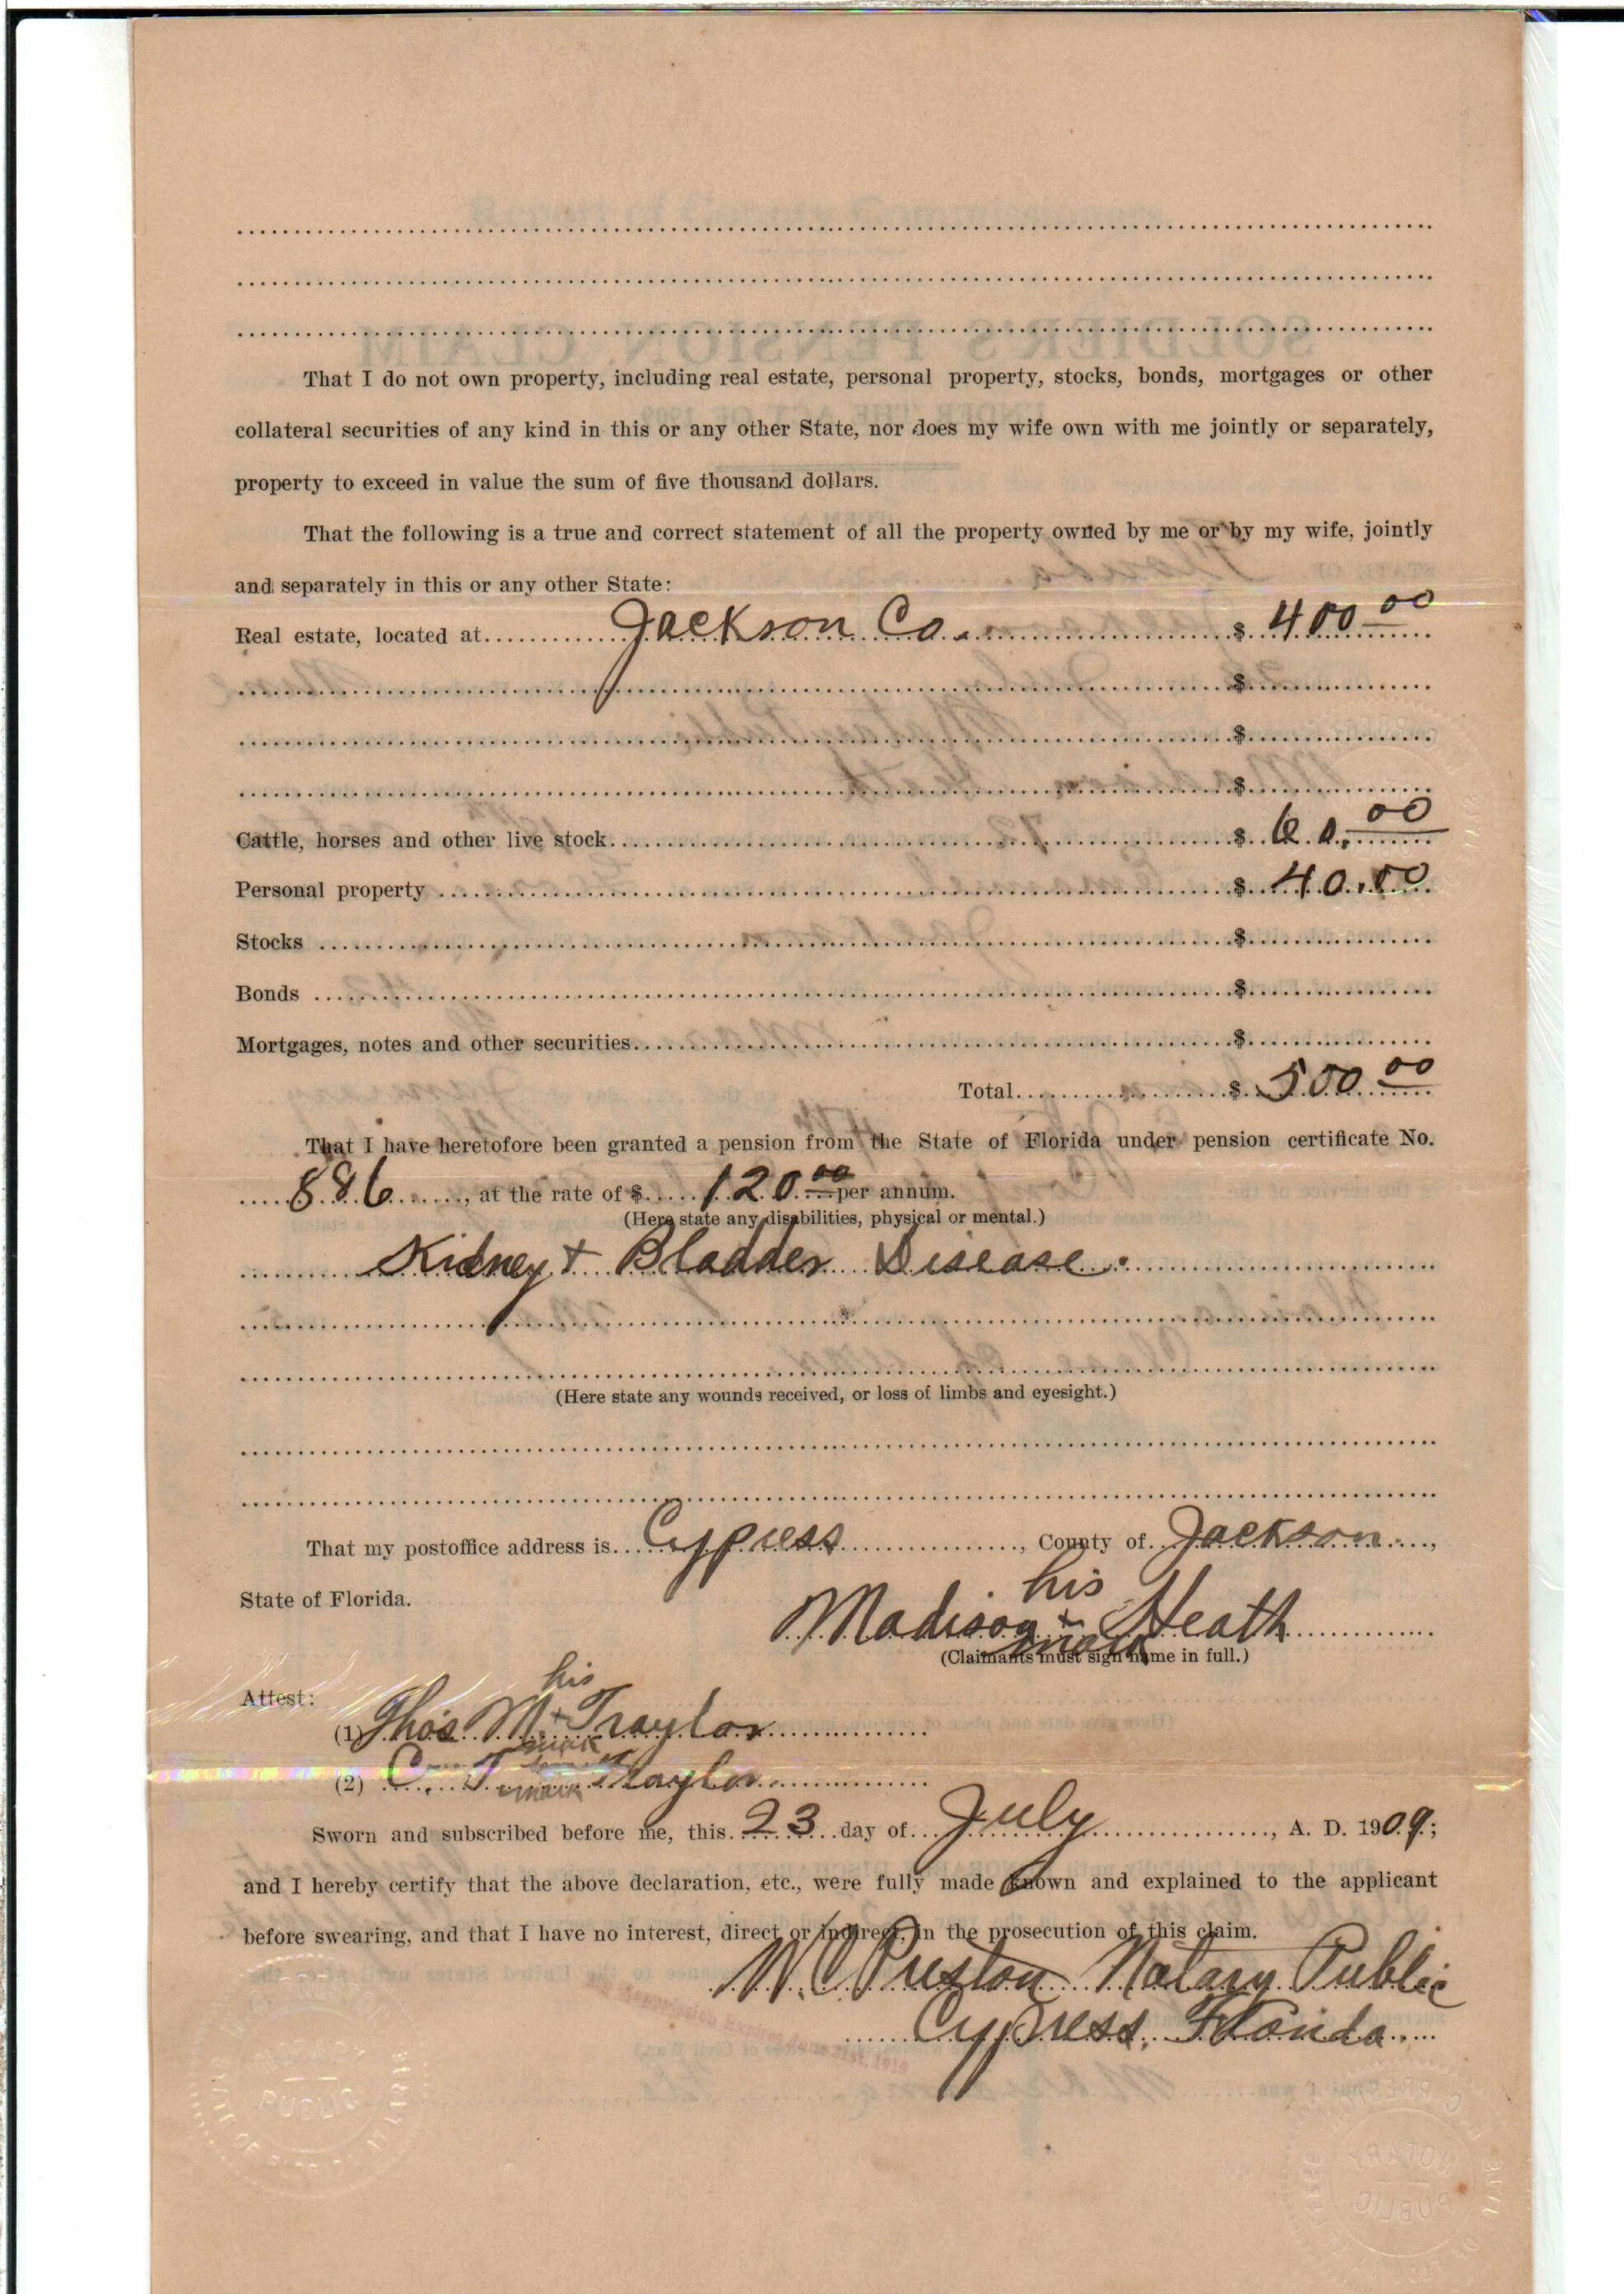 That I do not own property, including real estate, personal property, stocks, bonds, mortgages or other
collateral securities of any kind in this or any other State, nor does my wife own with me jointly or separately,
property to exceed in value the sum of five thousand dollars.
That the following is a true and correct statement of all the property owned by me or by my wife, jointly
and separately in this or any other State:
Real estate, located at Jackson Co. $ 400.00
$
$
$
Cattle, horses and other live stock $ 60.00
Personal property $ 40.00
Stocks $
Bonds $
Mortgages, notes and other securities $
Total $ 500.00
That I have heretofore been granted a pension from the State of Florida under pension certificate No.
886, at the rate of $ 120.00 per annum.
(Here state any disabilities, physical or mental.)
Kidney + Bladder Disease.
(Here state any wounds received, or loss of limbs and eyesight.)
That my postoffice address is Cypress, County of Jackson,
State of Florida.
his
Madison + Heath
mark
(Claimants must sign name in full.)
Attest:
his
(1) Thos M + Traylor
mark
(2) C. T. Traylor
mark
Sworn and subscribed before me, this 23 day of July, A. D. 1909;
and I hereby certify that the above declaration, etc., were fully made known and explained to the applicant
before swearing, and that I have no interest, direct or indirect, in the prosecution of this claim.
W. C. Preston Notary Public
Cypress, Florida
NOTARY
PUBLIC